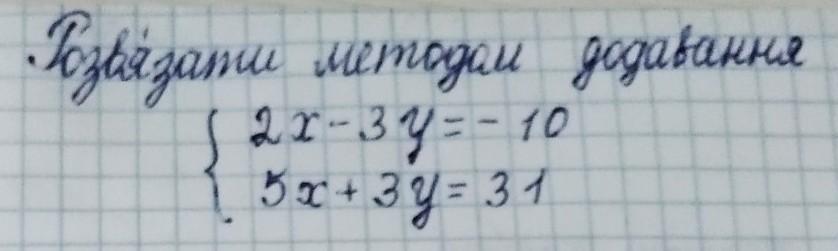 Розв'язати методом додавання
2x - 3y = - 10
5x + 3y = 31